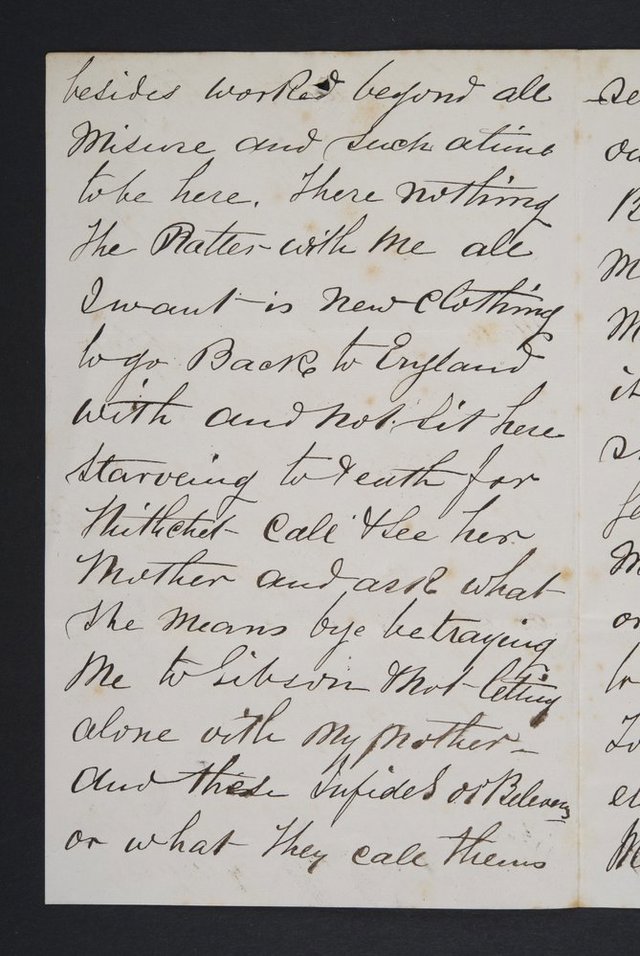 besides worked beyond all
Misure and such atime
tobe here. There nothing
The Matter with Me all
I want is New Clothing
to go Back to England
with and not sit here
starveing to death for
call & See her
Mother and ask what
She Means bye betraying
Me to Gibson & Not letting
alone with My Mother
and these Infidels or Belevers
or what They call thems
se
it
or